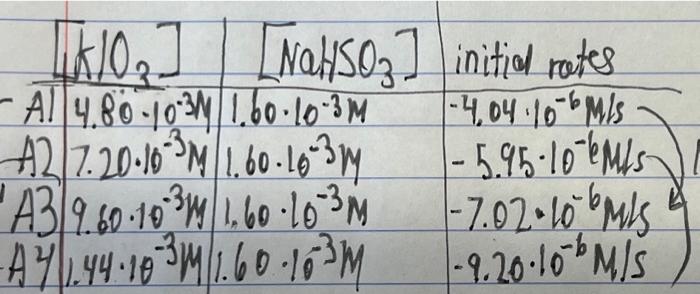 [KIO₃] [NaHSO₃] initial rates
A1 4.80·10⁻³M 1.60·10⁻³M -4.04·10⁻⁶ M/s
A2 7.20·10⁻³M 1.60·10⁻³M -5.95·10⁻⁶ M/s
A3 9.60·10⁻³M 1.60·10⁻³M -7.02·10⁻⁶ M/s
A4 1.44·10⁻³M 1.60·10⁻³M -9.20·10⁻⁶ M/s